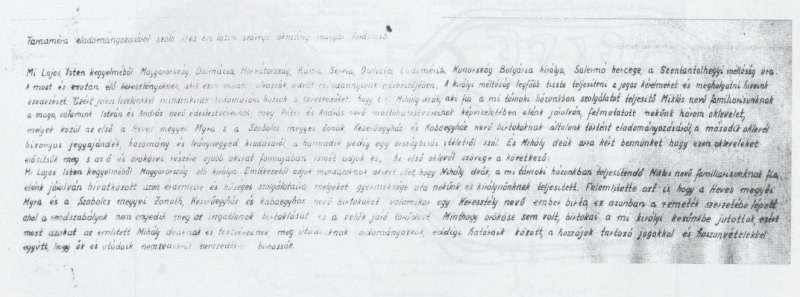 Tarnaméra eladományozásáról szóló latin oklevél magyar fordítása
Mi Lajos, Isten kegyelméből Magyarország, Dalmácia, Horvátország, Ráma, Szervia, Galícia, Lodoméria, Kunország Bulgária királya, Salernó hercege, a Szentantalhegyi méltóság ura
A most és ezután élő keresztényeknek, akik ezen olvassák, üdvöt mindannyiunk üdvözítőjében. A királyi méltóság legfőbb tiszte teljesíteni a jogos kérelmeket és meghallgatni híveink
Ezért jelen levelünkkel mindenkinek tudomására hozzuk a következőket: hogy Mihály deák, aki fia a mi tárnoki házunkban szolgálatot teljesítő Miklós nevű familiárisunknak
a maga, valamint István és András nevű édestestvéreinek, meg Péter és András nevű képviseletében elénk járulván, felmutatott nekünk három oklevelet,
melyek közül az első a Heves megyei Myra s a Szabolcs megyei Zonah, Keserűegyház és Kabaegyház nevű birtokoknak általunk történt eladományozásáról, a második oklevél
bizonyos jegyajándék, hozomány és leánynegyed kiadásáról, a harmadik pedig egy országbírói ítéletről szól. És Mihály deák arra kért bennünket hogy ezen okleveleket
erősítsük meg s az ő és örökösei részére újabb okirat formájában ismét adjuk ki. Az első oklevél szövege a következő:
Mi Lajos Isten kegyelméből Magyarország stb királya. Emlékezetül adjuk mindazoknak akiket illet hogy Mihály deák, a mi tárnoki házunkban teljesítendő Miklós nevű familiárisunknak fia,
elénk járulván hivatkozott azon érdemeire és hűséges szolgálataira melyeket gyermeksége óta nekünk és királynénknak teljesített. Felemlítette azt is, hogy a Heves megyei
Myra és a Szabolcs megyei Zonath, Keserűegyház és Kabaegyház nevű birtokokat valamikor egy Keresztély nevű ember bírta, ez azonban a remeték szerzetébe lépett,
ahol a rendszabályok nem engedik meg az ingatlanok birtoklását és a velük járó törődést. Minthogy örököse sem volt, birtokai a mi királyi kezünkbe jutottak, ezért
most azokat az említett Mihály deáknak és testvéreinek meg utódaiknak adományozzuk, eddigi határaik között, a hozzájuk tartozó jogokkal és haszonvételekkel
együtt, hogy ők és utódaik nemzedékről nemzedékre bírhassák.